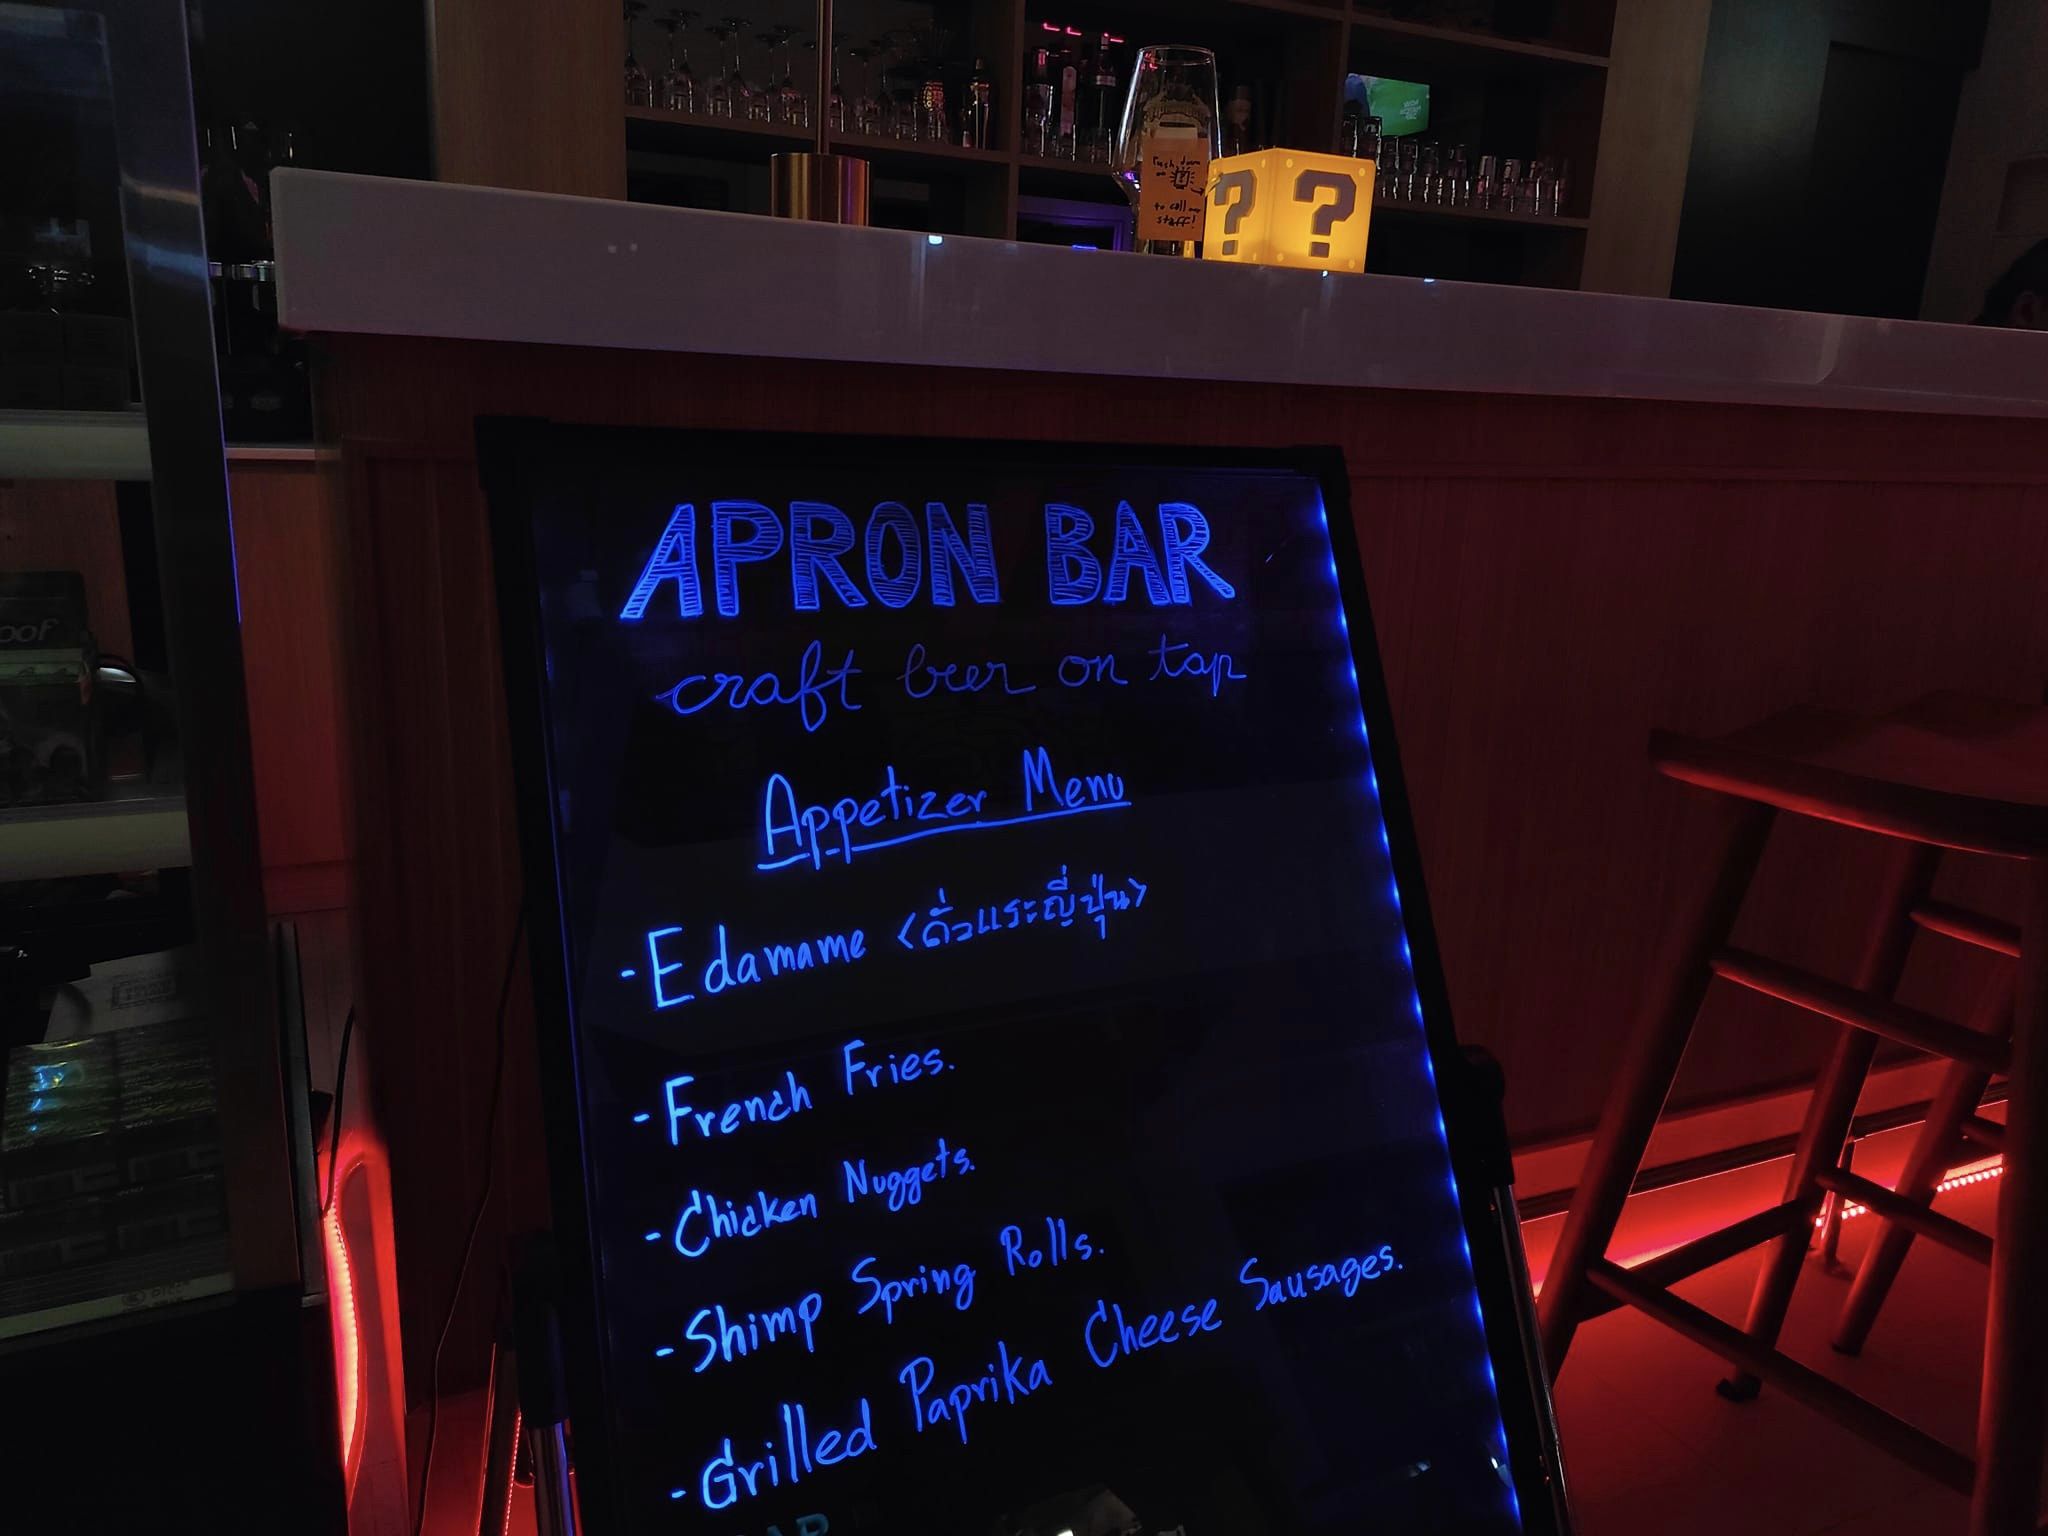 Push down
on
to call our
staff!
? ?
APRON BAR
craft beer on tap
Appetizer Menu
- Edamame <ถั่วแระญี่ปุ่น>
- French Fries.
- Chicken Nuggets.
- Shimp Spring Rolls.
- Grilled Paprika Cheese Sausages.
oof